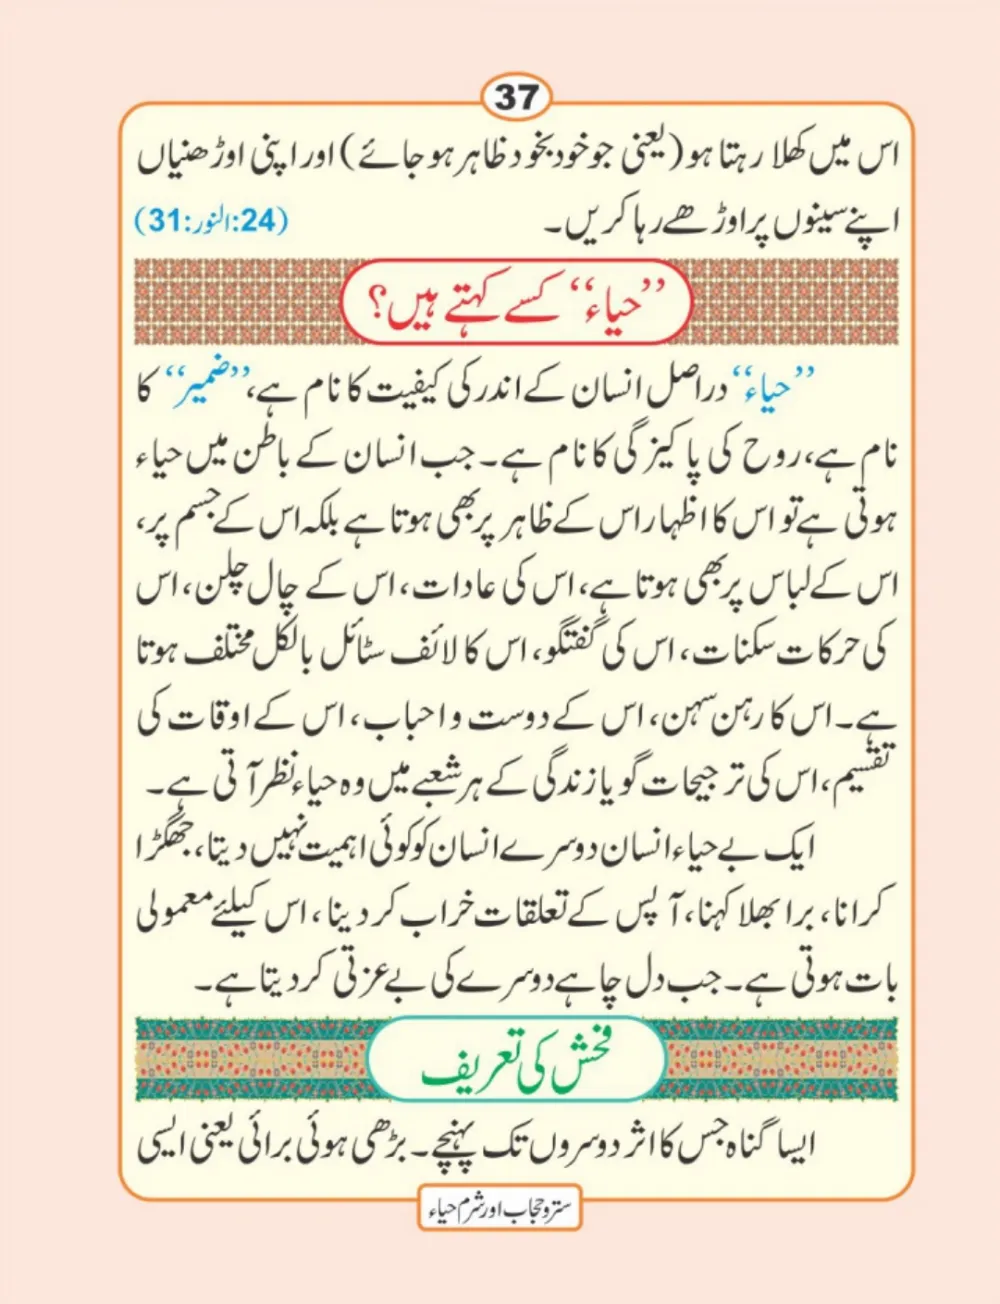 37
اس میں کھلا رہتا ہو (یعنی جو خود بخود ظاہر ہو جائے) اور اپنی اوڑھنیاں
اپنے سینوں پر اوڑھے رہا کریں۔ (24:النور:31)
”حیاء“ کسے کہتے ہیں؟
”حیاء“ دراصل انسان کے اندر کی کیفیت کا نام ہے، ”ضمیر“ کا
نام ہے، روح کی پاکیزگی کا نام ہے۔ جب انسان کے باطن میں حیاء
ہوتی ہے تو اس کا اظہار اس کے ظاہر پر بھی ہوتا ہے بلکہ اس کے جسم پر،
اس کے لباس پر بھی ہوتا ہے، اس کی عادات، اس کے چال چلن، اس
کی حرکات سکنات، اس کی گفتگو، اس کا لائف سٹائل بالکل مختلف ہوتا
ہے۔ اس کا رہن سہن، اس کے دوست و احباب، اس کے اوقات کی
تقسیم، اس کی ترجیحات گویا زندگی کے ہر شعبے میں وہ حیاء نظر آتی ہے۔
ایک بے حیاء انسان دوسرے انسان کو کوئی اہمیت نہیں دیتا، جھگڑا
کرانا، برا بھلا کہنا، آپس کے تعلقات خراب کر دینا، اس کیلئے معمولی
بات ہوتی ہے۔ جب دل چاہے دوسرے کی بے عزتی کر دیتا ہے۔
فحش کی تعریف
ایسا گناہ جس کا اثر دوسروں تک پہنچے۔ بڑھی ہوئی برائی یعنی ایسی
ستر و حجاب اور شرم حیاء